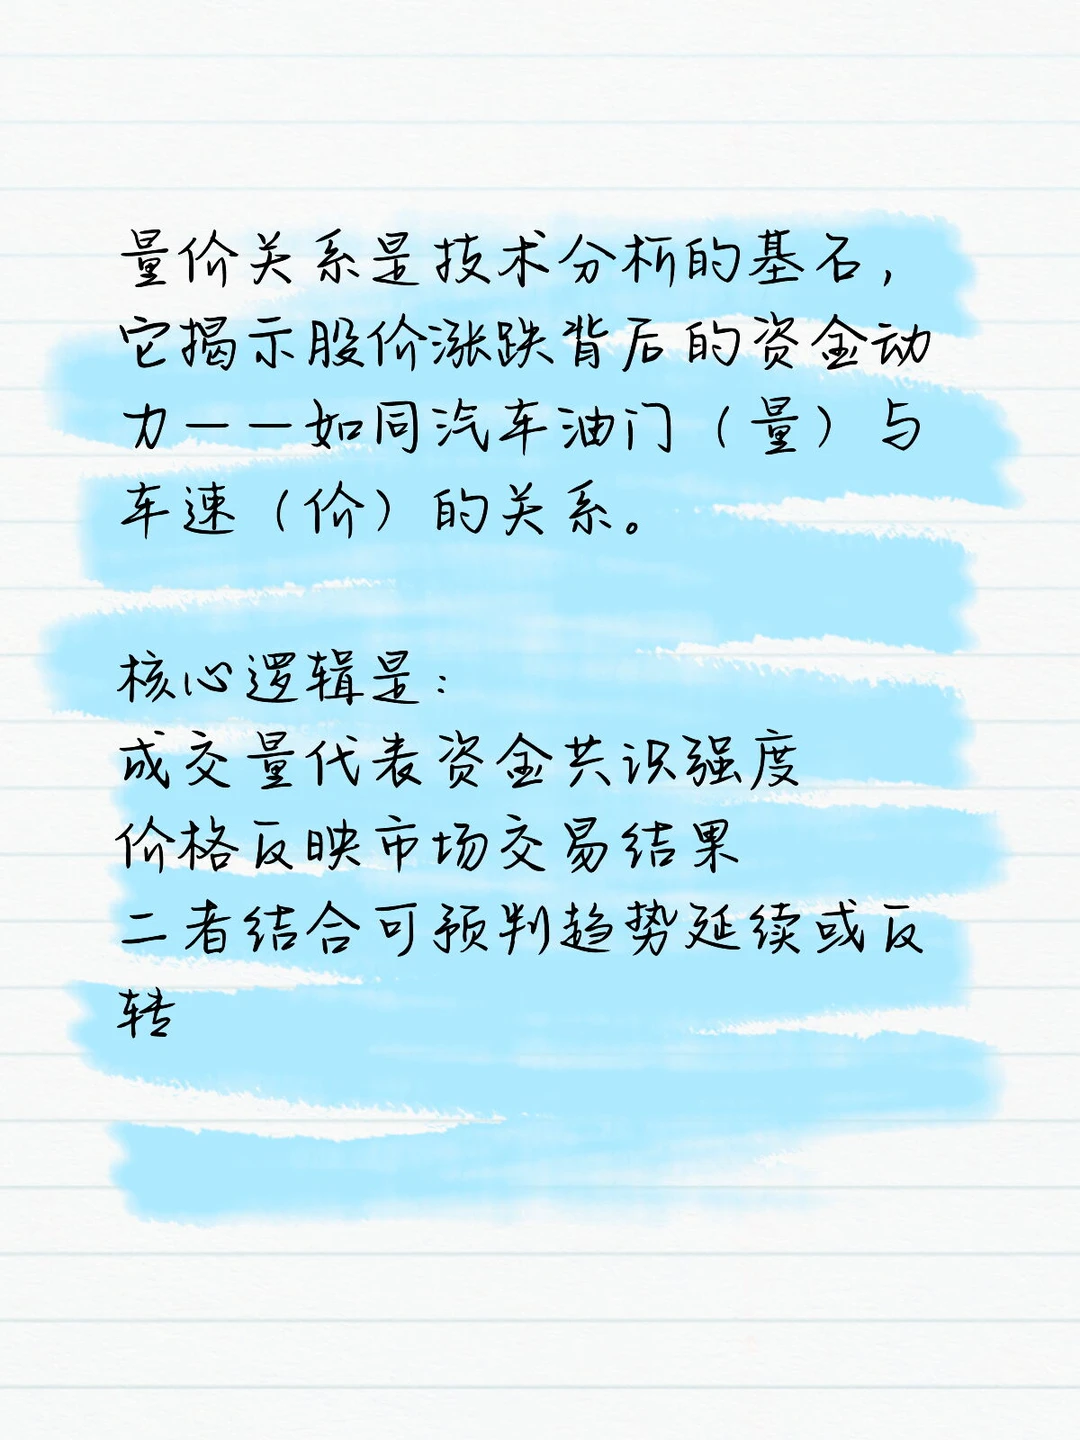 量价关系是技术分析的基石，
它揭示股价涨跌背后的资金动
力——如同汽车油门（量）与
车速（价）的关系。
核心逻辑是：
成交量代表资金共识强度
价格反映市场交易结果
二者结合可预判趋势延续或反
转